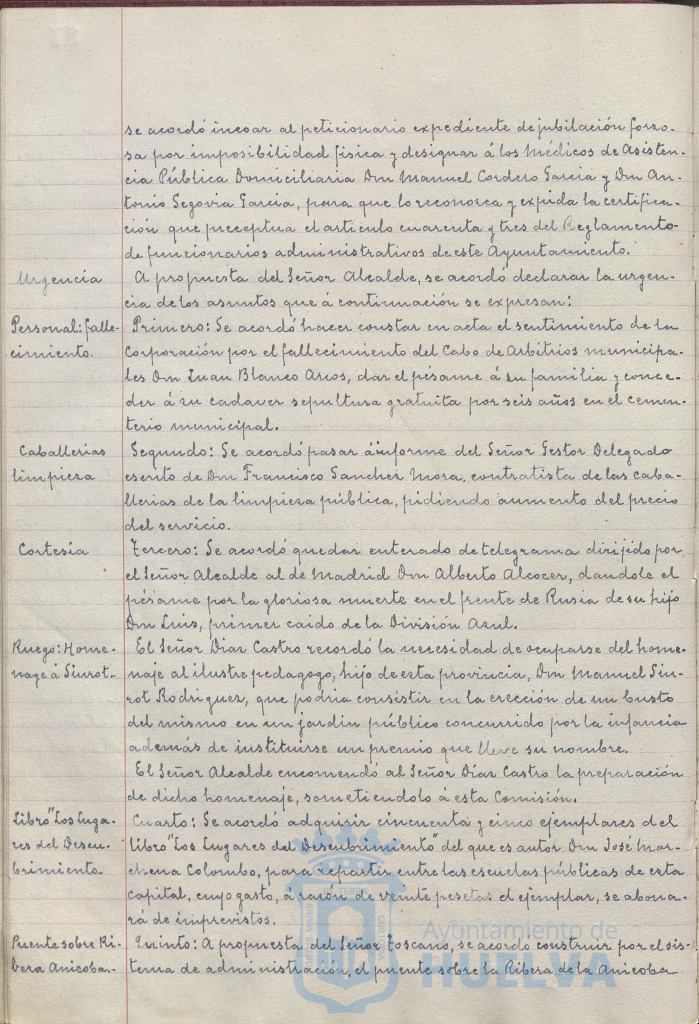 se acordó incoar al peticionario expediente de jubilación forzo-
sa por imposibilidad fisica y designar á los Médicos de Asisten-
cia Pública Domiciliaria Don Manuel Cordero Garcia y Don An-
tonio Segovia Garcia, para que lo reconozca y expida la certifica-
ción que preceptua el articulo cuarenta y tres del Reglamento
de funcionarios administrativos de este Ayuntamiento.
Urgencia A propuesta del Señor Alcalde, se acordó declarar la urgen-
cia de los asuntos que á continuación se expresan:
Personal: falle- Primero: Se acordó hacer constar en acta el sentimiento de la
cimiento. Corporación por el fallecimiento del Cabo de Arbitrios municipa-
les Don Juan Blanco Arcos, dar el pésame á su familia y conce-
der á su cadaver sepultura gratuita por seis años en el cemen-
terio municipal.
Caballerias Segundo: Se acordó pasar á informe del Señor Gestor Delegado
limpieza escrito de Don Francisco Sanchez Mora, contratista de las caba-
llerias de la limpieza pública, pidiendo aumento del precio
del servicio.
Cortesía Tercero: Se acordó quedar enterado de telegrama dirijido por
el Señor Alcalde al de Madrid Don Alberto Alcocer, dandole el
pésame por la gloriosa muerte en el frente de Rusia de su hijo
Don Luis, primer caido de la División Azul.
Ruego: Home- El Señor Diaz Castro recordó la necesidad de ocuparse del home-
nage á Siurot.- naje al ilustre pedagogo, hijo de esta provincia, Don Manuel Siu-
rot Rodriguez, que podria consistir en la erección de un busto
del mismo en un jardin público concurrido por la infancia
además de instituirse un premio que lleve su nombre.
El Señor Alcalde encomendó al Señor Díaz Castro la preparación
de dicho homenaje, sometiendolo á esta Comisión.
Libro "Los Luga- Cuarto: Se acordó adquirir cincuenta y cinco ejemplares del
res del Descu- libro "Los Lugares del Descubrimiento" del que es autor Don José Mar-
brimiento.- chena Colombo, para repartir entre las escuelas públicas de esta
capital, cuyo gasto, á razón de veinte pesetas el ejemplar, se abona-
rá de imprevistos.
Puente sobre Ri- Quinto: A propuesta del Señor Toscano, se acordo construir por el sis-
bera Anicoba.- tema de administración, el puente sobre la Ribera de la Anicoba
Ayuntamiento de
HUELVA